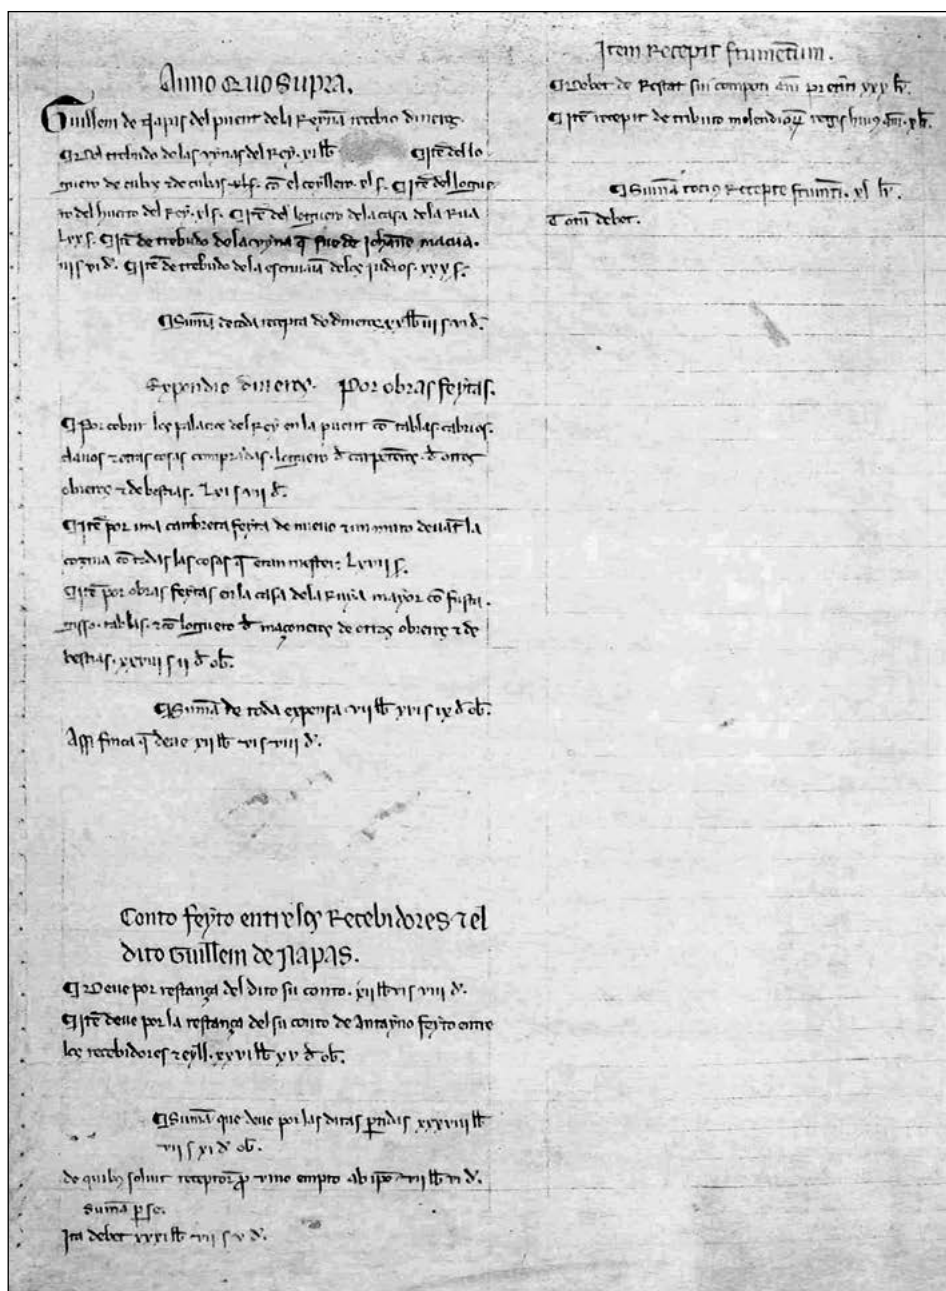 Anno quo supra.
Guillem de Napas del puent de la Reyna recebio diners.
¶ Del trebudo de las vynas del Rey. xi lb ¶ Itē del lo
guero de cubas. xl s. cō el ceyllero. xl s. ¶ Itē del logue
ro del huerto del Rey. xl s. ¶ Itē del loguero de la casa de la Rua
Lxx s. ¶ Itē de trebudo de la vyna q̄ fue de Johan̄e macia.
iii s vi d'. ¶ Itē de trebudo de la escriuania delos judios. xxx s.
¶ Sum̄a de toda recepta de diners. xx lb iii s vi d'.
Expendio diners. Por obras feytas.
¶ Por cobrir los palacios del Rey en la puent cō tablas. cabrios.
clauos ⁊ otras cosas compradas. loguero d' carpenters. d' otros
obreros ⁊ de bestias. Lxi s vii d'.
¶ Itē por una cambreta feyta de nueuo ⁊ un muro deuāt la
cozina cō todas las cosas q̄ eran mester. Lxvii s.
¶ Itē por obras feytas en la casa de la Rua mayor cō fusta.
gisso. tablas. ⁊ cō loguero d' maçoneros de otros obreros ⁊ de
bestias. xxviii s ii d' ob'.
¶ Sum̄a de toda expensa vii lb xvi s ix d' ob'.
Assi finca q̄ deue xii lb vi s viii d'.
Conto feyto entre los Recebidores ⁊ el
dito Guillem de Napas.
¶ Deue por restança del dito su conto. xii lb vi s viii d'.
¶ Itē deue por la restança del su conto de Antayno feyto entre
los recebidores ⁊ eyll. xxvi lb xv d' ob'.
¶ Sum̄a que deue por las ditas ꝑtidas xxxviii lb
vii s xi d' ob'.
de quibꝰ soluit receptoꝝ ꝓ vino empto ab ip̄o vii lb vi d'.
sum̄a ꝑ se.
Ita debet xxxi lb vii s v d'.
Item Recepit frumētum.
¶ Debet de Restat sui compoti āni p̄cēti xxx k̄.
¶ Itē recepit de tributo molendinoꝝ regis huiꝰ āni. x k̄.
¶ Sum̄a tociꝰ Recepte frum̄ti. xl k̄.
Totū debet.